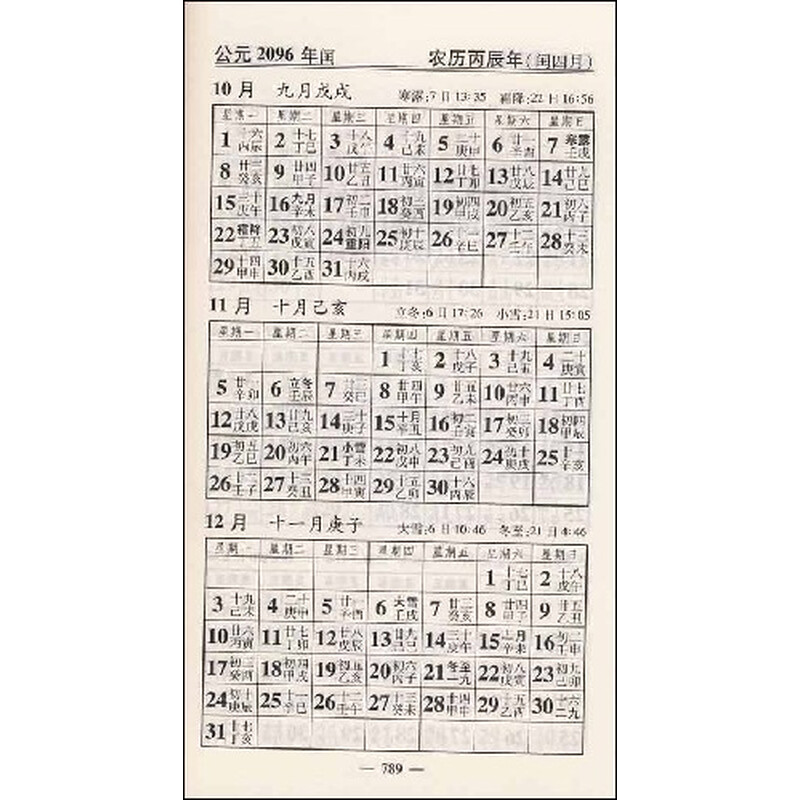 公元 2096 年闰 农历丙辰年(闰四月)
10 月 九月戊戌 寒露:7日13:35 霜降:22日16:56
星期一 星期二 星期三 星期四 星期五 星期六 星期日
1 十六 丙辰 2 十七 丁巳 3 十八 戊午 4 十九 己未 5 二十 庚申 6 廿一 辛酉 7 寒露 壬戌
8 廿三 癸亥 9 廿四 甲子 10 廿五 乙丑 11 廿六 丙寅 12 廿七 丁卯 13 廿八 戊辰 14 廿九 己巳
15 三十 庚午 16 九月 辛未 17 初二 壬申 18 初三 癸酉 19 初四 甲戌 20 初五 乙亥 21 初六 丙子
22 霜降 丁丑 23 初八 戊寅 24 初九 重阳 25 初十 庚辰 26 十一 辛巳 27 十二 壬午 28 十三 癸未
29 十四 甲申 30 十五 乙酉 31 十六 丙戌
11 月 十月己亥 立冬:6日17:26 小雪:21日15:05
星期一 星期二 星期三 星期四 星期五 星期六 星期日
1 十七 丁亥 2 十八 戊子 3 十九 己丑 4 二十 庚寅
5 廿一 辛卯 6 立冬 壬辰 7 廿三 癸巳 8 廿四 甲午 9 廿五 乙未 10 廿六 丙申 11 廿七 丁酉
12 廿八 戊戌 13 廿九 己亥 14 三十 庚子 15 十月 辛丑 16 初二 壬寅 17 初三 癸卯 18 初四 甲辰
19 初五 乙巳 20 初六 丙午 21 小雪 丁未 22 初八 戊申 23 初九 己酉 24 初十 庚戌 25 十一 辛亥
26 十二 壬子 27 十三 癸丑 28 十四 甲寅 29 十五 乙卯 30 十六 丙辰
12 月 十一月庚子 大雪:6日10:46 冬至:21日4:46
星期一 星期二 星期三 星期四 星期五 星期六 星期日
1 十七 丁巳 2 十八 戊午
3 十九 己未 4 二十 庚申 5 廿一 辛酉 6 大雪 壬戌 7 廿三 癸亥 8 廿四 甲子 9 廿五 乙丑
10 廿六 丙寅 11 廿七 丁卯 12 廿八 戊辰 13 廿九 己巳 14 三十 庚午 15 十一月 辛未 16 初二 壬申
17 初三 癸酉 18 初四 甲戌 19 初五 乙亥 20 初六 丙子 21 冬至 一九 22 初八 戊寅 23 初九 己卯
24 初十 庚辰 25 十一 辛巳 26 十二 壬午 27 十三 癸未 28 十四 甲申 29 十五 乙酉 30 十六 二九
31 十七 丁亥
— 789 —